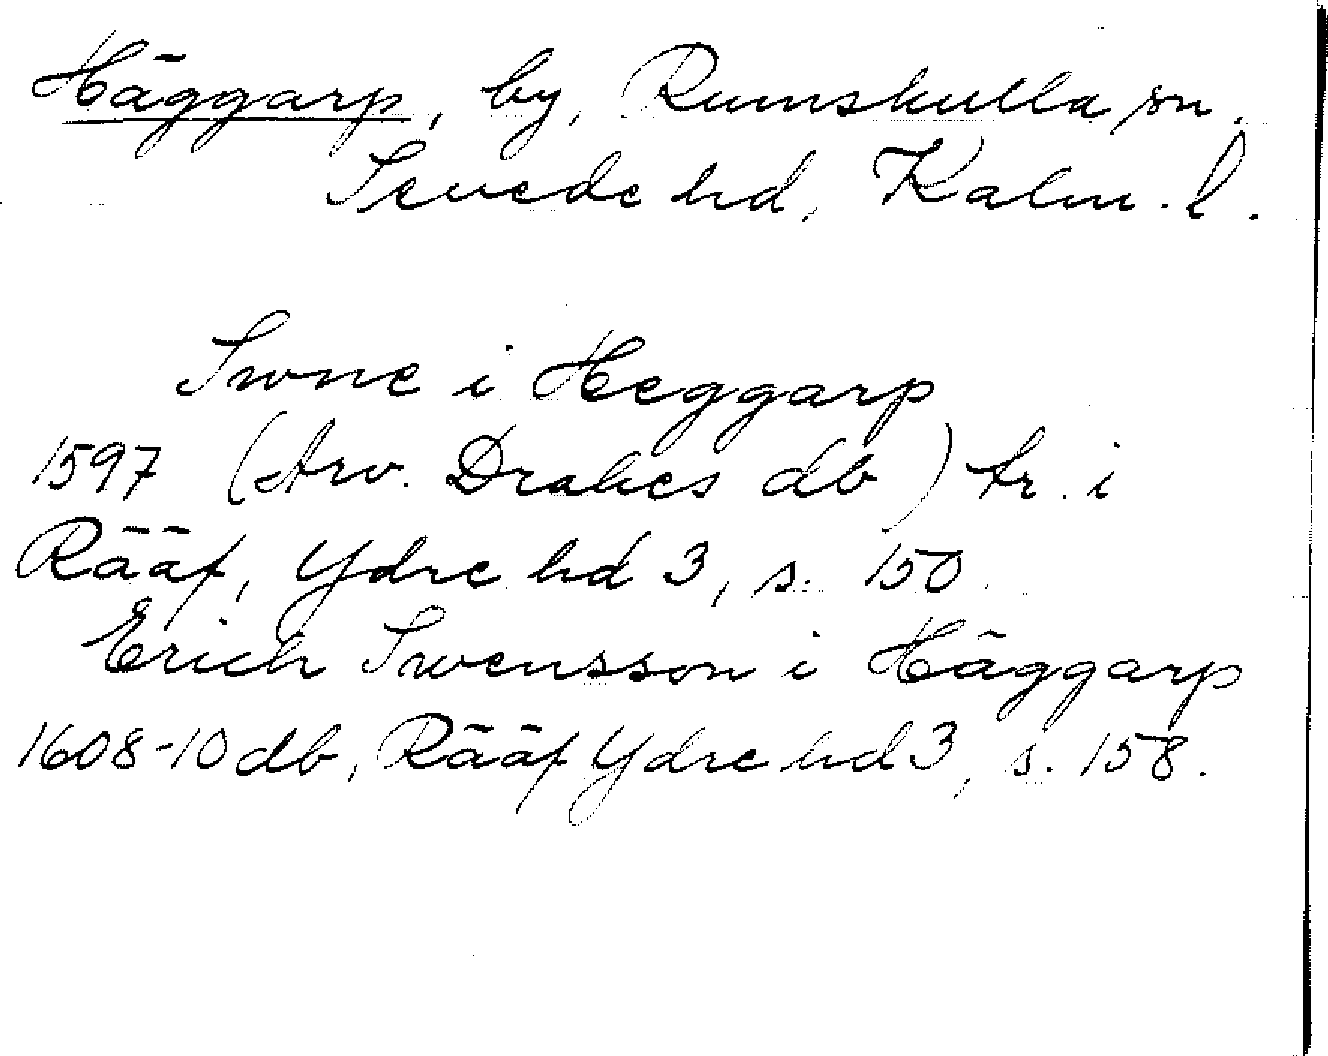 Häggarp, by, Rumskulla sn,
Sevede hd, Kalm. l.
Swne i Heggarp
1597 (Arv. Drakes db) tr. i
Rääf, Ydre hd 3, s. 150.
Erich Swensson i Häggarp
1608-10 db, Rääf Ydre hd 3, s. 158.